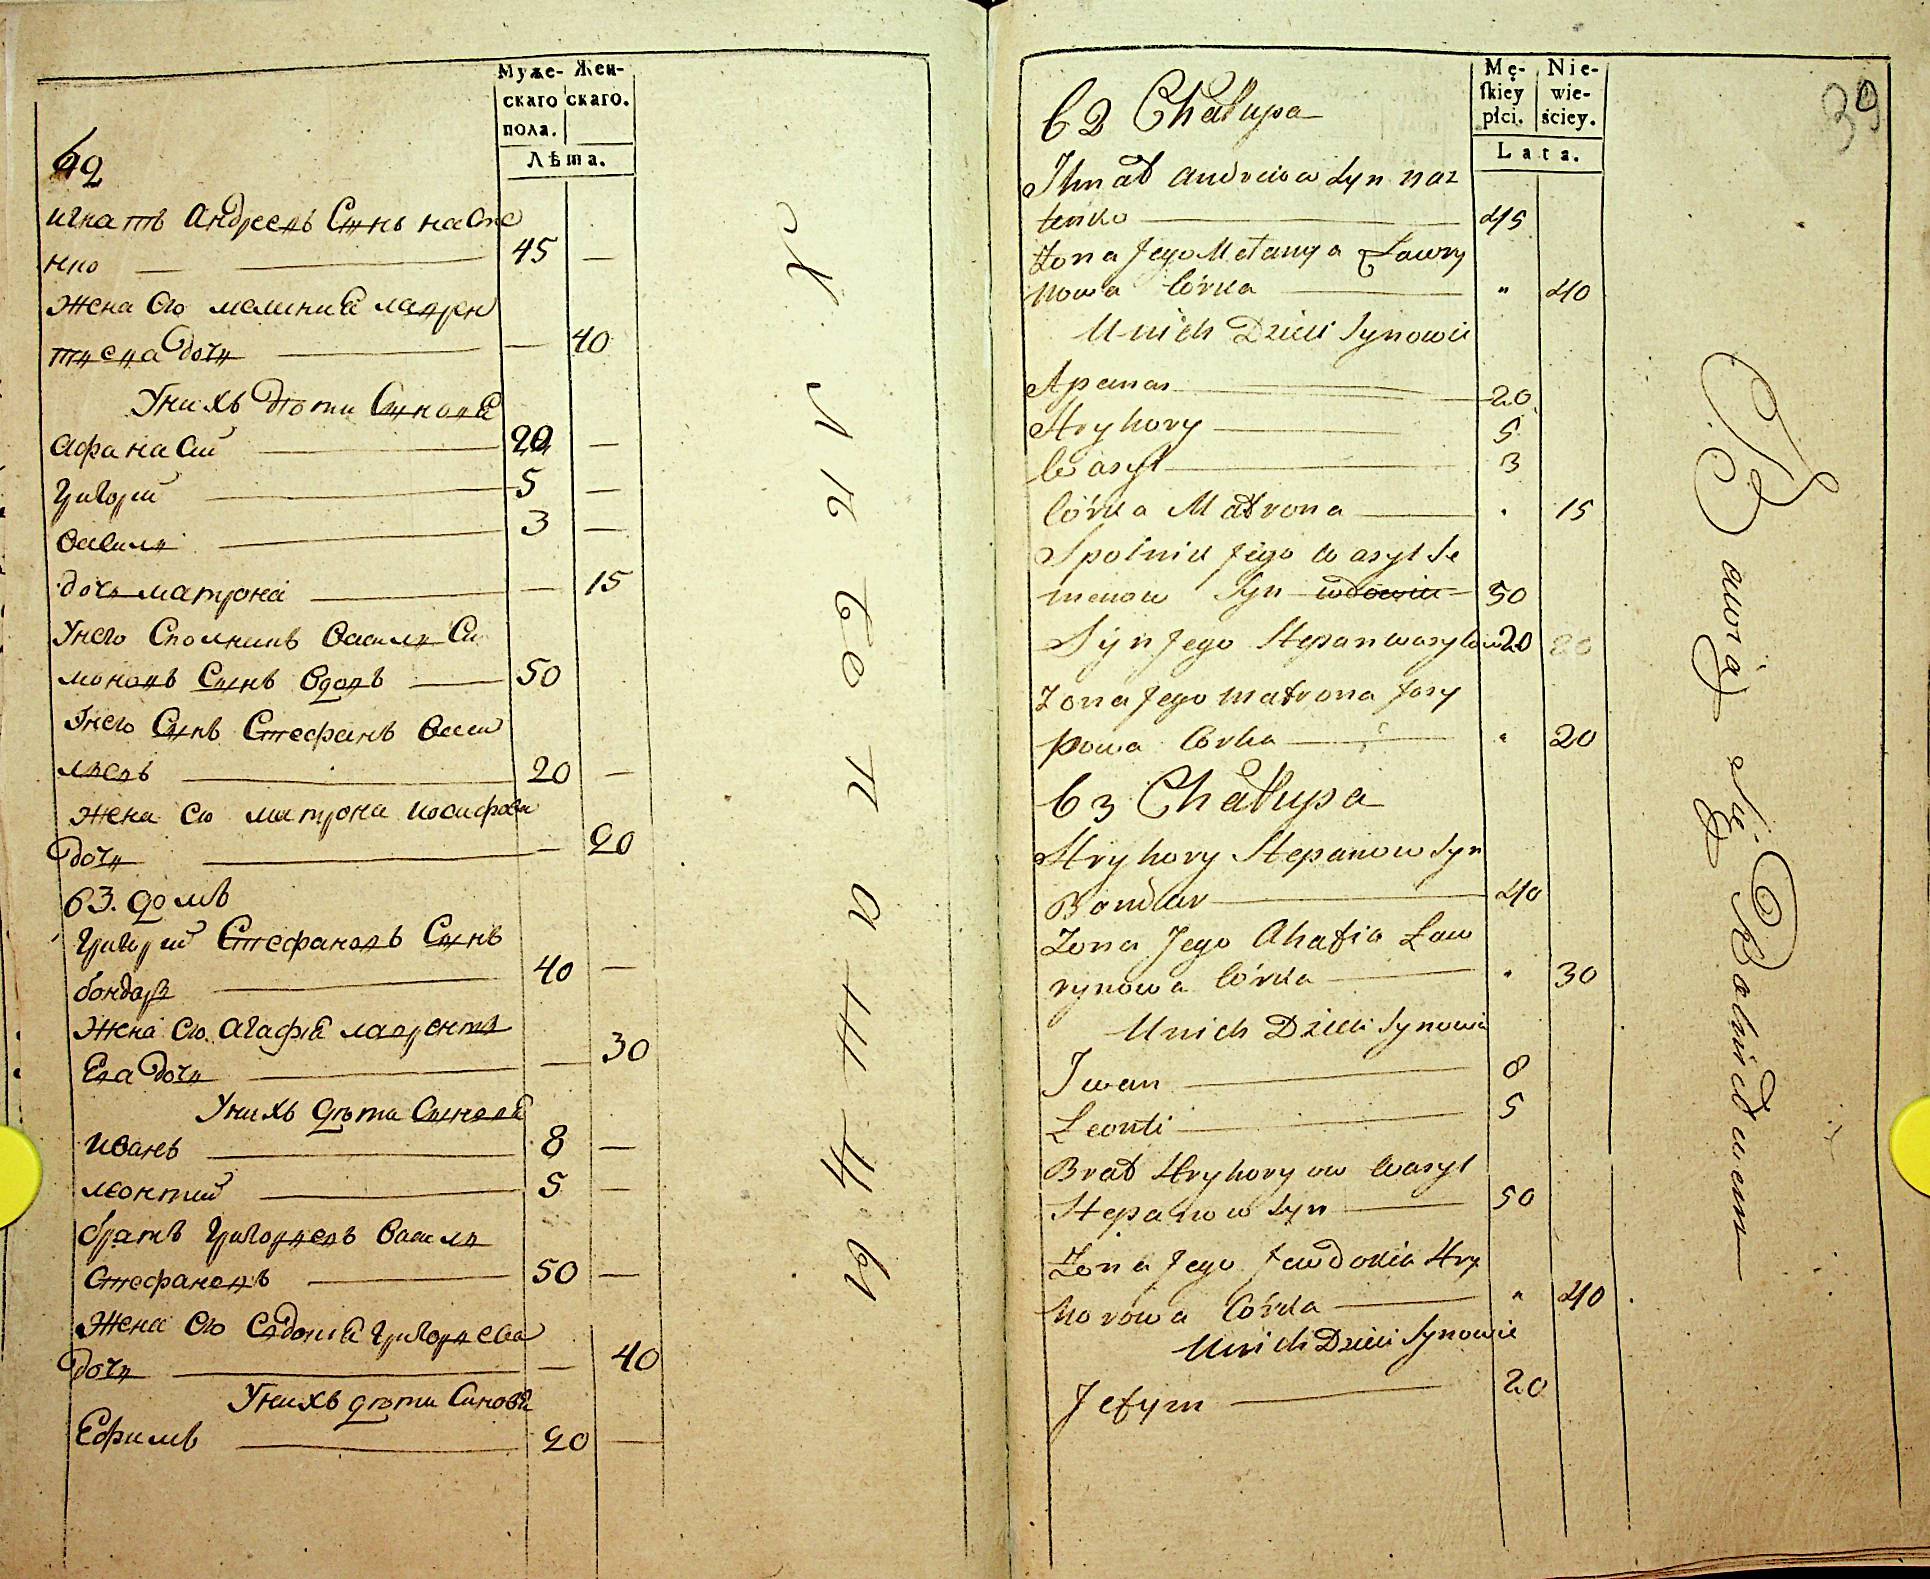 Муже- Жен-
скаго скаго.
пола.
Лѣта.
62
игнатъ андреевъ Сынъ насте
нко 45 —
жена его меланиѣ лаврен
тиева дочь — 40
Унихъ дѣти Сыновѣ
афанасий 20 —
григорий 5 —
василь 3 —
дочь матрона — 15
Унего Сполникъ василь Си
моновъ Сынъ вдовъ 50
Унего Сынъ Стефанъ васи
лиевъ 20 —
жена его матрона иосифова
дочь — 20
63. домъ
григорий Стефановъ Сынъ
бондарь 40 —
жена его агафиѣ лаврентъ
ева дочь — 30
Унихъ дѣти Сыновѣ
иванъ 8 —
леонтий 5 —
братъ григориевъ василь
Стефановъ 50 —
жена его Евдокиѣ григориева
дочь — 40
Унихъ дѣти Синовѣ
Ефимъ 20 —
39
Mę- Nie-
skiey wie-
płci. ściey.
Lata.
62 Chałupa
Ihnat Andreiow Syn nas
tenko 45
Zona Jego Melanya Ławry
nowa Córka " 40
U nich Dzieci Synowie
Apanas 20
Hryhory 5
Wasyl 3
Córka Matrona " 15
Spolnik Jego Wasyl Se
menow Syn wdowiec 50
Syn Jego Stepan Wasylow 20 20
Zona Jego Matrona Josy
powa Córka " 20
63 Chałupa
Hryhory Stepanow Syn
Bondar 40
Zona Jego Ahafia Ław
rynowa Córka " 30
U nich Dzieci Synowie
Iwan 8
Leonti 5
Brat Hryhoryow Wasyl
Stepanow Syn 50
Zona Jego Jewdokia Hry
horowa Córka " 40
U nich Dzieci Synowie
Jefym 20